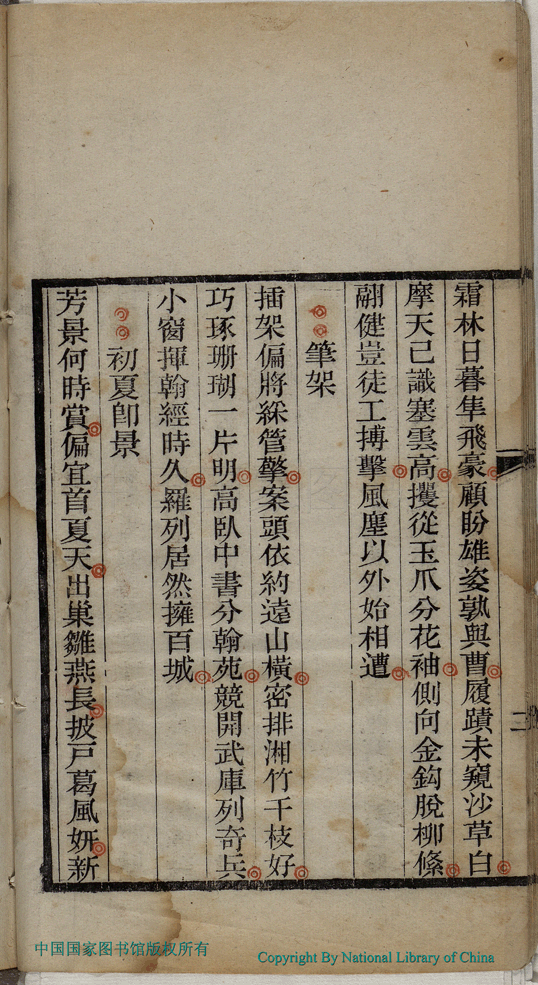 霜林日暮隼飛豪顧盼雄姿孰與曹履蹟未窺沙草白
摩天已識塞雲高攫從玉爪分花袖側向金鈎脫柳絛
翮健豈徒工搏擊風塵以外始相遭
筆架
插架偏將綵管擎案頭依約遠山橫密排湘竹千枝好
巧琢珊瑚一片明高臥中書分翰苑競開武庫列奇兵
小窗揮翰經時久羅列居然擁百城
初夏卽景
芳景何時賞偏宜首夏天出巢雛燕長披戸葛風妍新
三
中国国家图书馆版权所有
Copyright By National Library of China